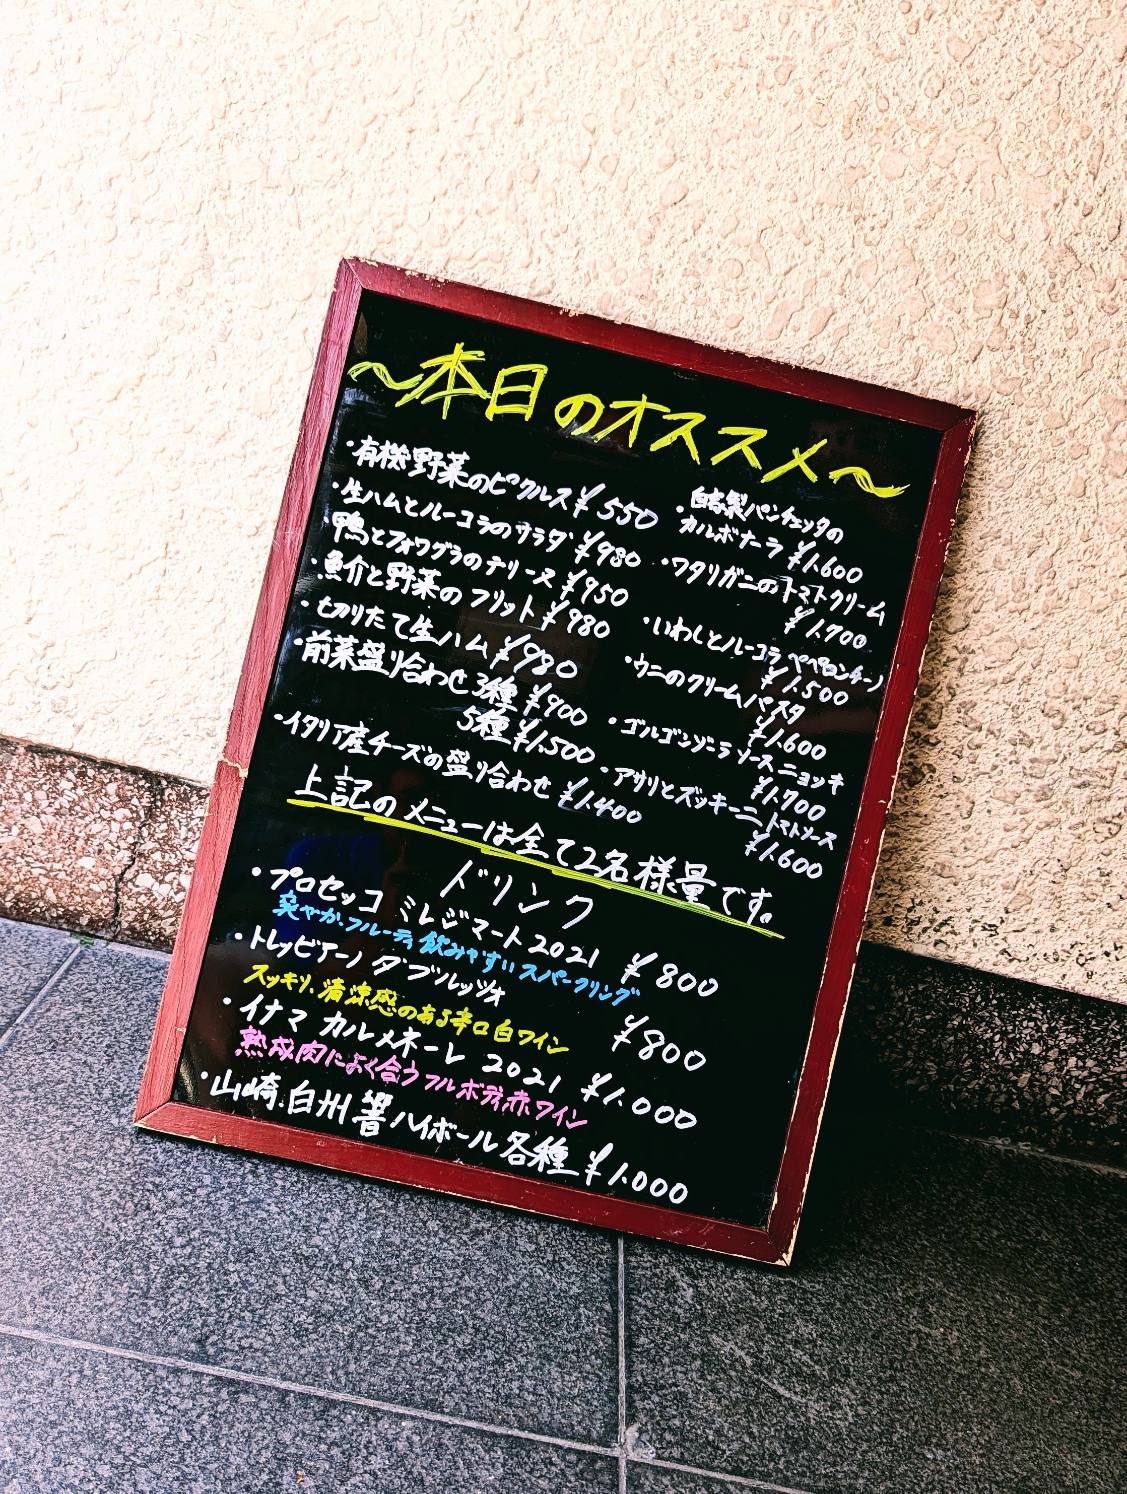 〜本日のオススメ〜
・有機野菜のピクルス ¥550
・生ハムとルーコラのサラダ ¥980
・鴨とフォワグラのテリーヌ ¥950
・魚介と野菜のフリット ¥980
・切りたて生ハム ¥980
・前菜盛り合わせ3種 ¥900
5種 ¥1,500
・イタリア産チーズの盛り合わせ ¥1.400
・自家製パンチェッタの
カルボナーラ ¥1.600
・ワタリガニのトマトクリーム
¥1.700
・いわしとルーコラ ペペロンチーノ
¥1.500
・ウニのクリームパスタ
¥1.600
・ゴルゴンゾーラソース ニョッキ
¥1.700
・アサリとズッキーニ トマトソース
¥1.600
上記のメニューは全て2名様量です。
ドリンク
・プロセッコ ミレジマート 2021 ¥800
爽やか、フルーティ 飲みやすいスパークリング
・トレッビアーノ ダブルッツォ
¥800
スッキリ、清涼感のある辛口白ワイン
・イナマ カルメネーレ 2021 ¥1.000
熟成肉によく合うフルボディ赤ワイン
・山崎.白州 響 ハイボール各種 ¥1.000